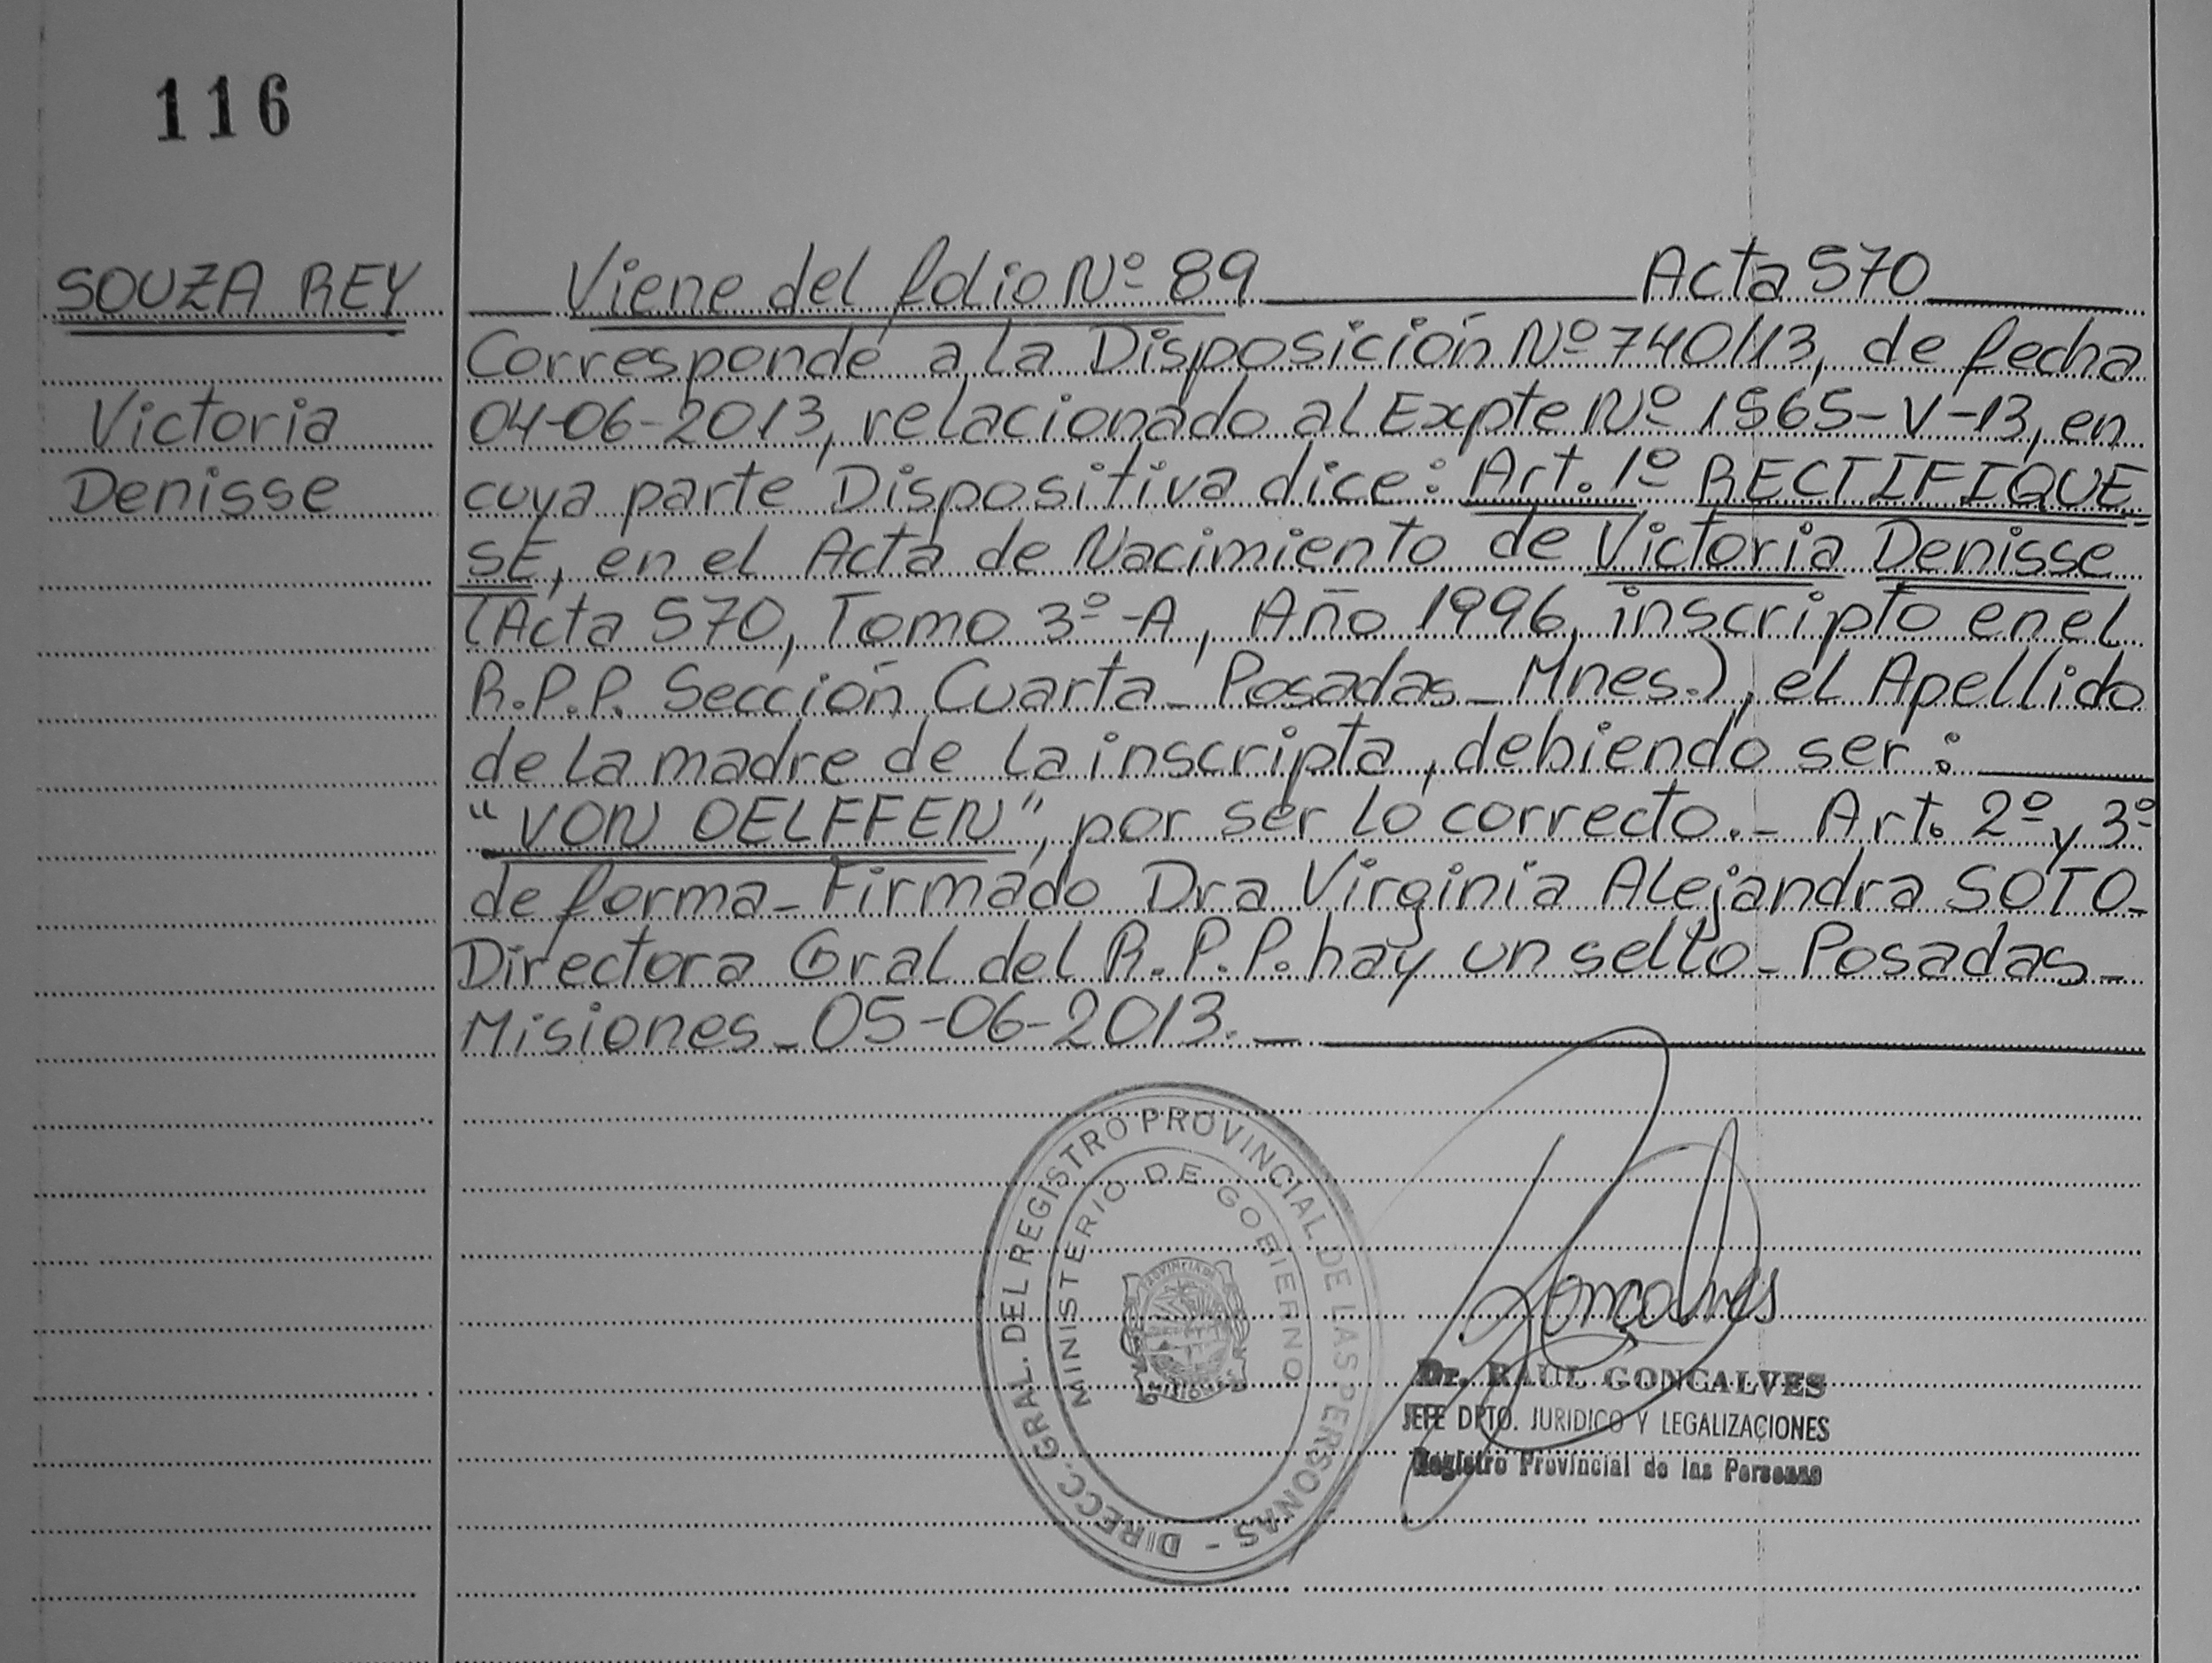 116
SOUZA REY
Victoria
Denisse
Viene del folio Nº 89 Acta 570
Corresponde a la Disposición Nº 740/13, de fecha
04-06-2013, relacionado al Expte Nº 1565-V-13, en
cuya parte Dispositiva dice: Art. 1º RECTIFIQUE
SE, en el Acta de Nacimiento de Victoria Denisse
(Acta 570, Tomo 3º-A, Año 1996, inscripto en el
R.P.P. Sección Cuarta_ Posadas_ Mnes.), el Apellido
de la madre de la inscripta, debiendo ser:
"VON OELFFEN", por ser lo correcto._ Art. 2º y 3º
de forma_ Firmado Dra Virginia Alejandra SOTO_
Directora Gral del R.P.P. hay un sello_ Posadas_
Misiones_ 05-06-2013._
DIRECC. GRAL. DEL REGISTRO PROVINCIAL DE LAS PERSONAS -
MINISTERIO DE GOBIERNO
PROVINCIA DE
MISIONES
Goncalves
Dr. RAUL GONCALVES
JEFE DPTO. JURIDICO Y LEGALIZACIONES
Registro Provincial de las Personas